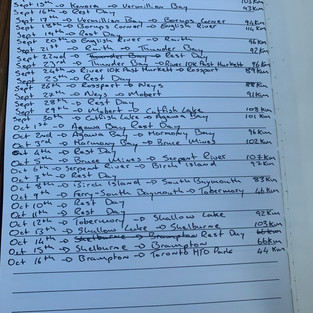 Sept 15th → Kenora → Vermillion Bay 105 km
Sept 16th → Rest Day 93 km
Sept 17th → Vermillion Bay → Borups Corner 96 km
Sept 18th → Borups Corner → English River 114 km
Sept 19th → Rest Day
Sept 20th → English River → 96 km
Sept 21st → → Thunder Bay 92 km
Sept 22nd → Thunder Bay → Rest Day
Sept 23rd → Thunder Bay → River 10k Past Hurkett 96 km
Sept 24th → River 10k Past Hurkett → Rossport 89 km
Sept 25th → Rest Day
Sept 26th → Rossport → Neys 88 km
Sept 27th → Neys → Mobert 91 km
Sept 28th → Rest Day
Sept 29th → Mobert → Catfish Lake 108 km
Sept 30th → Catfish Lake → Agawa Bay 101 km
Oct 1st → Agawa Bay Rest Day
Oct 2nd → Agawa Bay → Harmony Bay 96 km
Oct 3rd → Harmony Bay → Bruce Mines 102 km
Oct 4th → Rest Day
Oct 5th → Bruce Mines → Serpent River 107 km
Oct 6th → Serpent River → Birch Island 92 km
Oct 7th → Rest Day
Oct 8th → Birch Island → South Baymouth 83 km
Oct 9th → Ferry - South Baymouth → Tobermory 46 km
Oct 10th → Rest Day
Oct 11th → Rest Day
Oct 12th → Tobermory → Shallow Lake 92 km
Oct 13th → Shallow Lake → Shelburne 103 km
Oct 14th → Shelburne → Brampton Rest Day 66 km
Oct 15th → Shelburne → Brampton 66 km
Oct 16th → Brampton → Toronto HTO Park 44 km